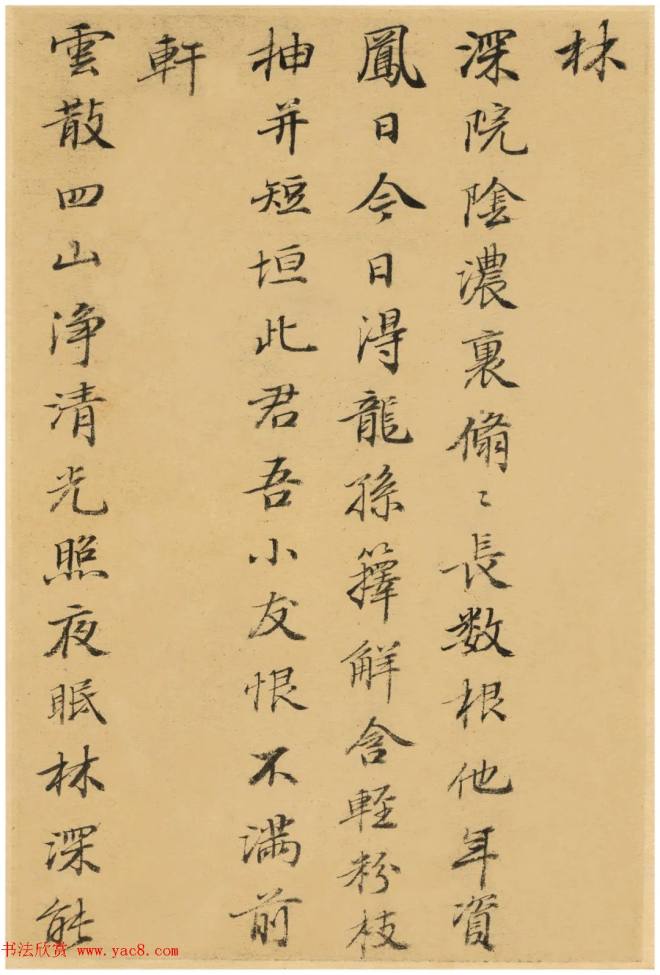 林
深院陰濃裏翛〻長数根他年資
鳳日今日得龍孫籜解含輕粉枝
抽并短垣此君吾小友恨不滿前
軒
雲散四山淨清光照夜眠林深能
书法欣赏 www.yac8.com